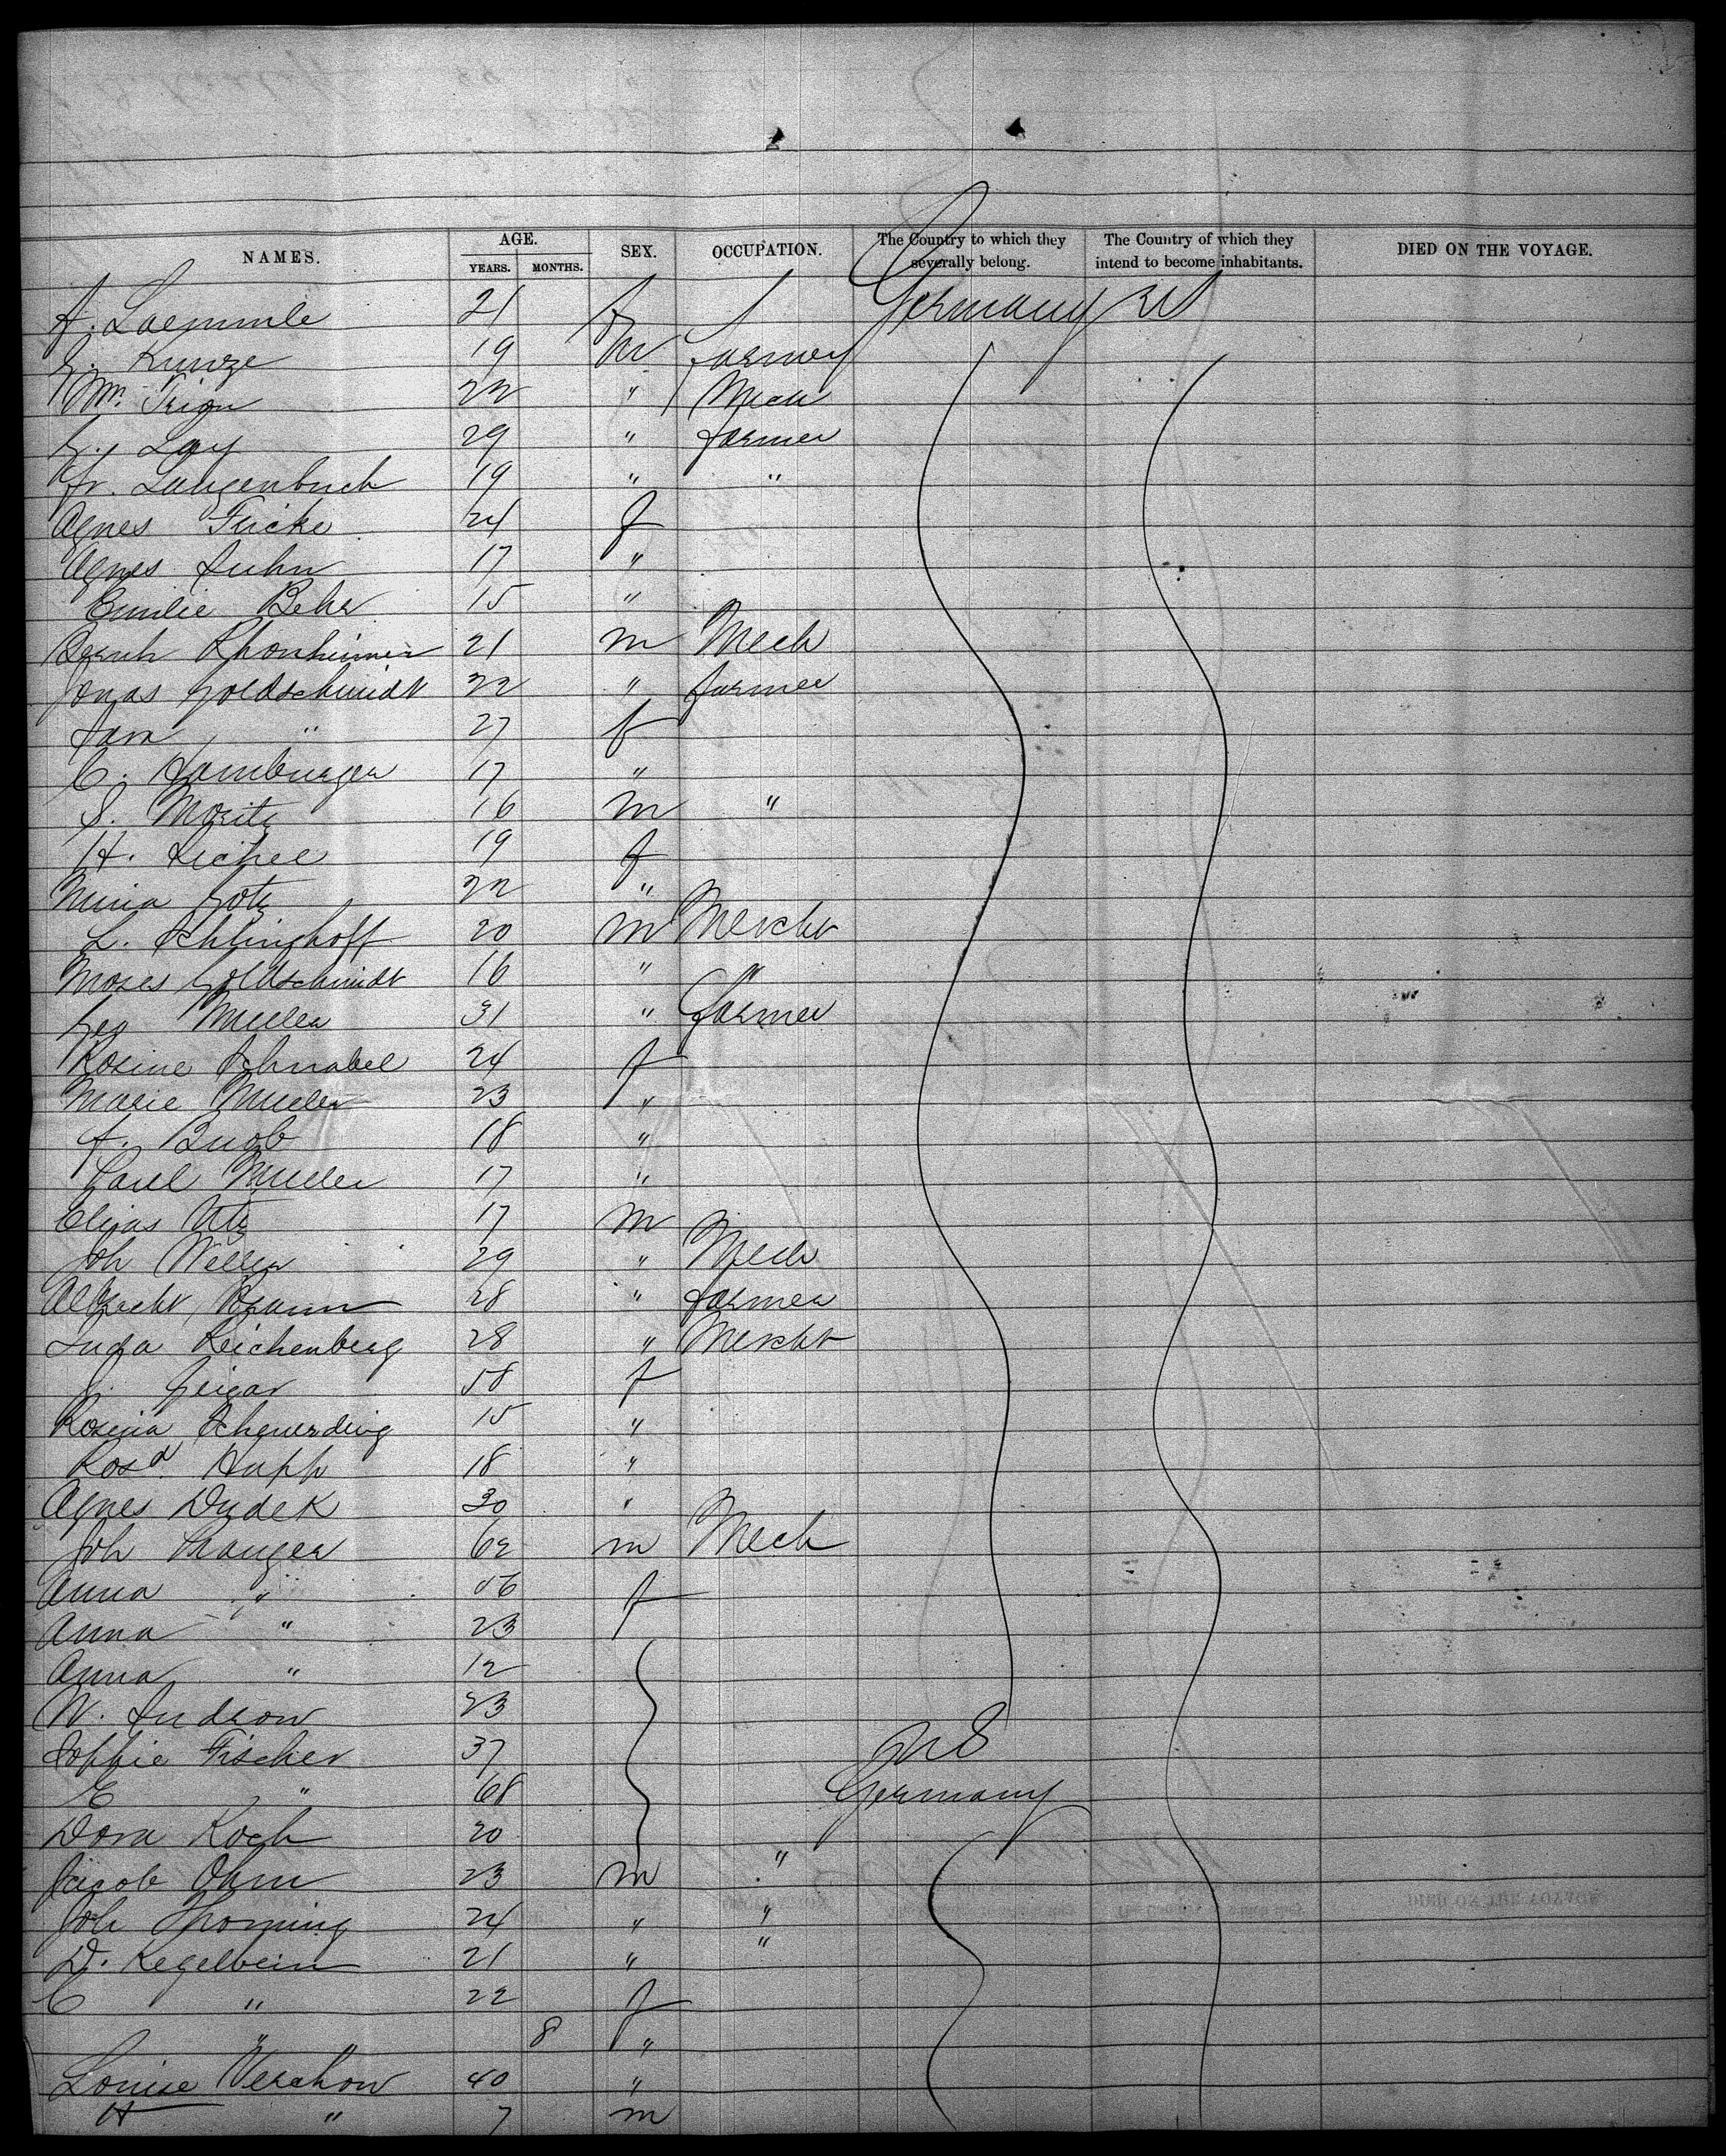 NAMES. AGE. SEX. OCCUPATION. The Country to which they severally belong. The Country of which they intend to become inhabitants. DIED ON THE VOYAGE.
YEARS. MONTHS.
A. Laemmle 21 f Germany US
G. Kunze 19 m farmer
Wm. 22 " Mech
G. Lay 29 " farmer
Fr. Langenbuch 19 " "
Agnes Fricke 24 f
Agnes Luhn 17 "
Emilie Behr 15 "
Bernh Rhonheimer 21 m Mech
Jonas Goldschmidt 22 " farmer
Sara " 27 f
C. Hamburger 17 "
S. Moritz 16 m "
H. 19 f
Mina Gotz 22 "
L. Schlinghoff 20 m Mercht
Moses Goldschmidt 16 "
Geo Muller 31 " farmer
Rosine Schnabel 24 f
Marie Muller 23 "
A. Buob 18 "
Carl Muller 17 "
Elias Utz 17 m
Joh Weller 29 " Mech
Albrecht Braun 28 " farmer
Reichenberg 28 " Mercht
Geigar 58 f
Rosina 15 "
Rosa Hupp 18 "
Agnes Dudek 30 "
Joh Pranger 62 m Mech
Anna " 56 f
Anna " 23
Anna " 12
W. Ludrow 23
Sophie Fischer 37 US
E " 68 Germany
Dora Koch 20
Jacob Ohm 23 m "
Joh Thoming 24 " "
D. Kegelbein 21 " "
C " 22 f
" 8 "
Louise Verchow 40 "
H " 7 m